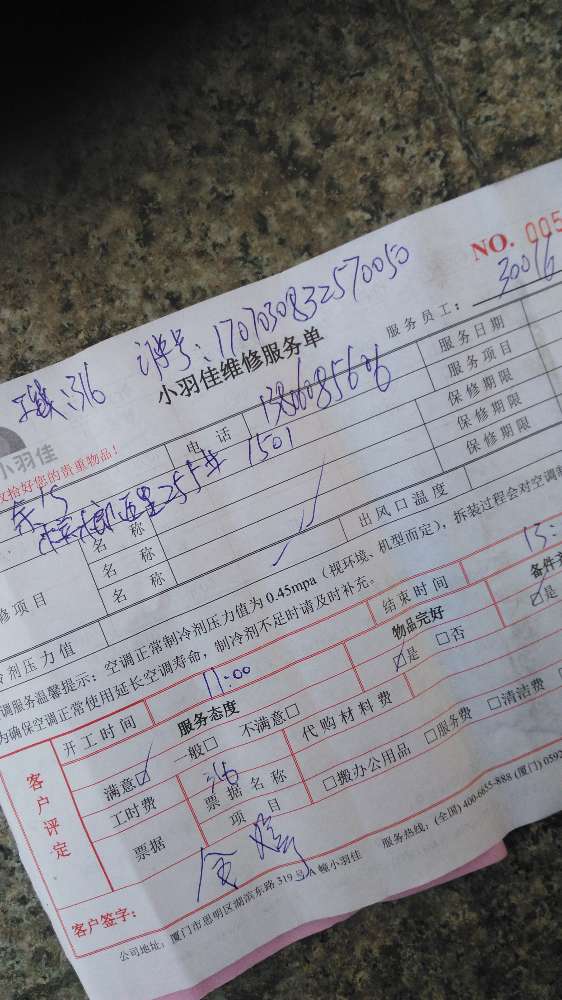 NO. 005
30016
服务员工：
订单号：1707030832570050
316
小羽佳维修服务单
小羽佳
收拾好您的贵重物品！
电话
服务日期
服务项目
保修期限
保修期限
保修期限
里255# 1501
名称
名称
名称
修项目
出风口温度
冷剂压力值
调服务温馨提示：空调正常制冷剂压力值为0.45mpa（视环境、机型而定），拆装过程会对空调制
为确保空调正常使用延长空调寿命，制冷剂不足时请及时补充。
开工时间
11:00
结束时间
13:
客户评定
服务态度
物品完好
备件齐
满意☑ 一般□ 不满意□
☑是 □否
☑是
工时费
316
代购材料费
票据
票据名称
项目
□搬办公用品 □服务费 □清洁费
客户签字：
公司地址：厦门市思明区湖滨东路319号A幢小羽佳
服务热线：(全国) 400-6655-888 (厦门) 0592